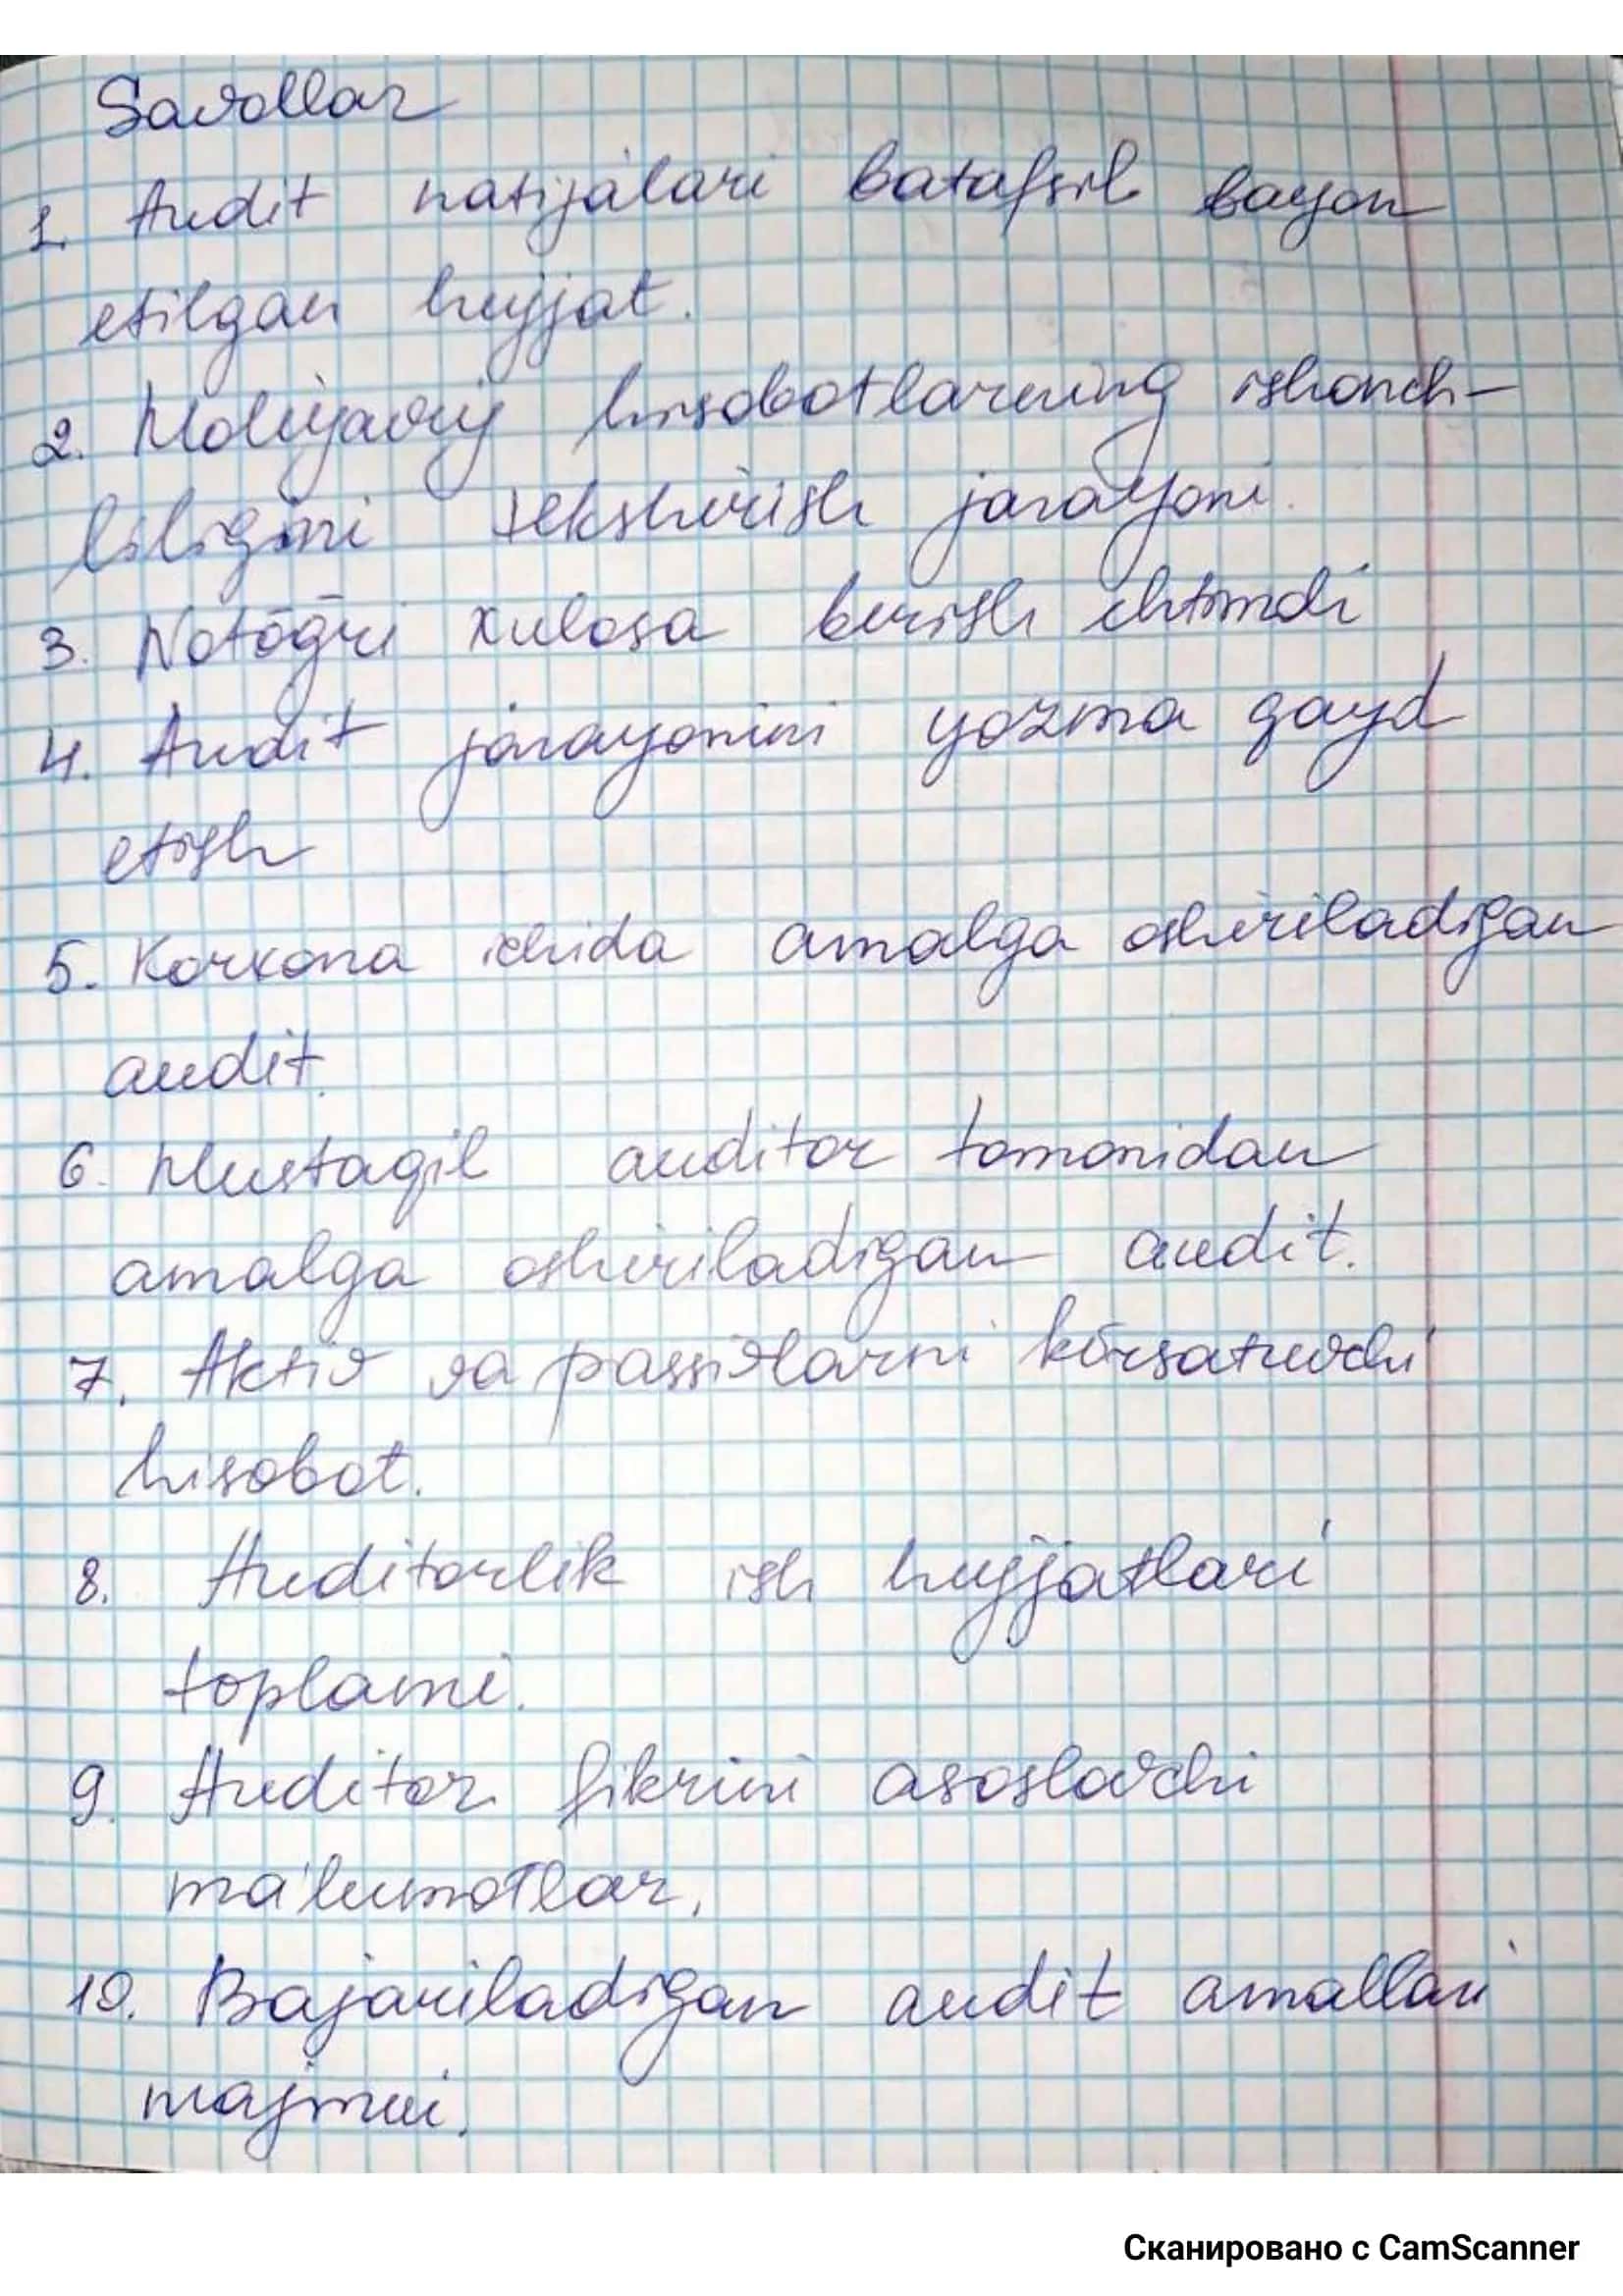 Savollar
1. Audit natijalari batafsil bayon
etilgan hujjat.
2. Moliyaviy hisobotlarning ishonch-
liligini tekshirish jarayoni.
3. Notōg̃ri xulosa berish ehtimoli
4. Audit jarayonini yozma qayd
etish
5. Korxona ichida amalga oshiriladigan
audit.
6. Mustaqil auditor tomonidan
amalga oshiriladigan audit.
7. Aktiv va passivlarni kōrsatuvchi
hisobot.
8. Auditorlik ish hujjatlari
toplami.
9. Auditor fikrini asoslovchi
ma'lumotlar.
10. Bajariladigan audit amallari
majmui.
Сканировано с CamScanner